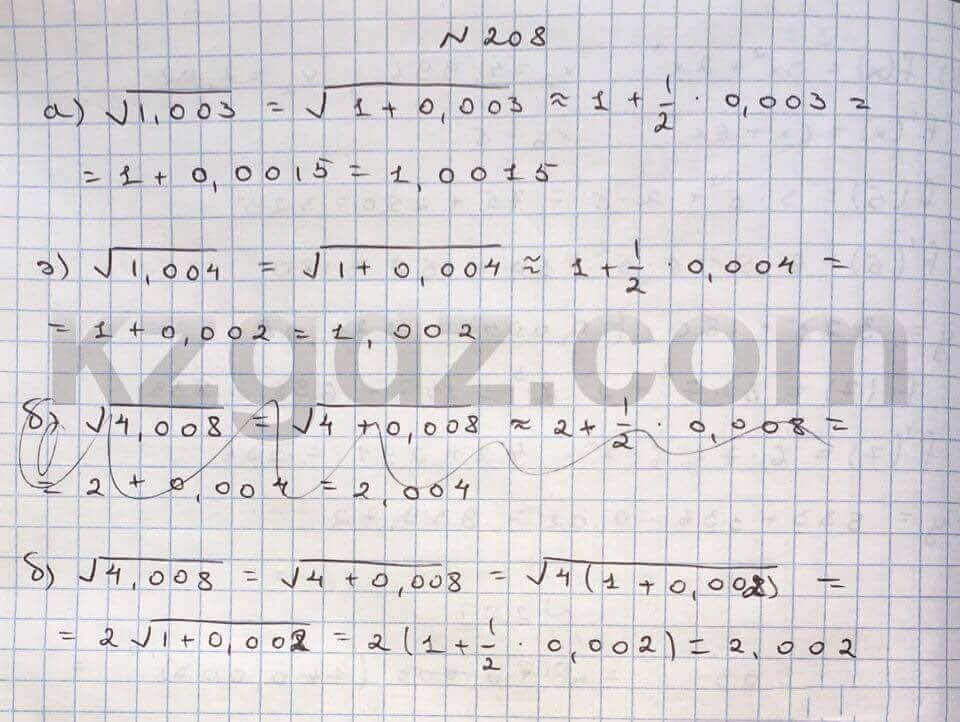 N 208
а) √1,003 = √1 + 0,003 ≈ 1 + 1/2 · 0,003 =
= 1 + 0,0015 = 1,0015
э) √1,004 = √1 + 0,004 ≈ 1 + 1/2 · 0,004 =
= 1 + 0,002 = 1,002
kzgdz.com
б) √4,008 = √4 + 0,008 ≈ 2 + 1/2 · 0,008 =
= 2 + 0,004 = 2,004
б) √4,008 = √4 + 0,008 = √4(1 + 0,002) =
= 2√1 + 0,002 = 2(1 + 1/2 · 0,002) = 2,002